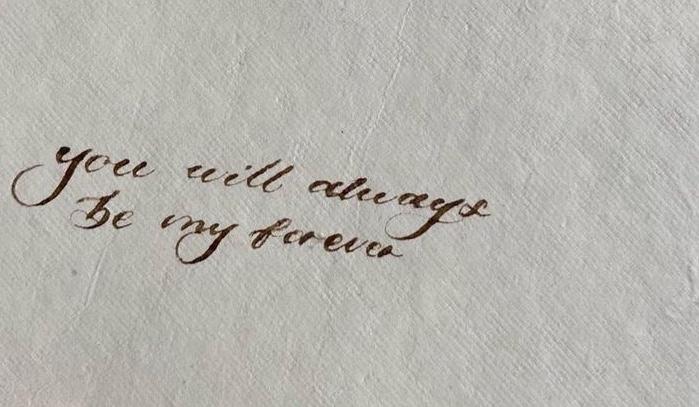 you will always
be my forever